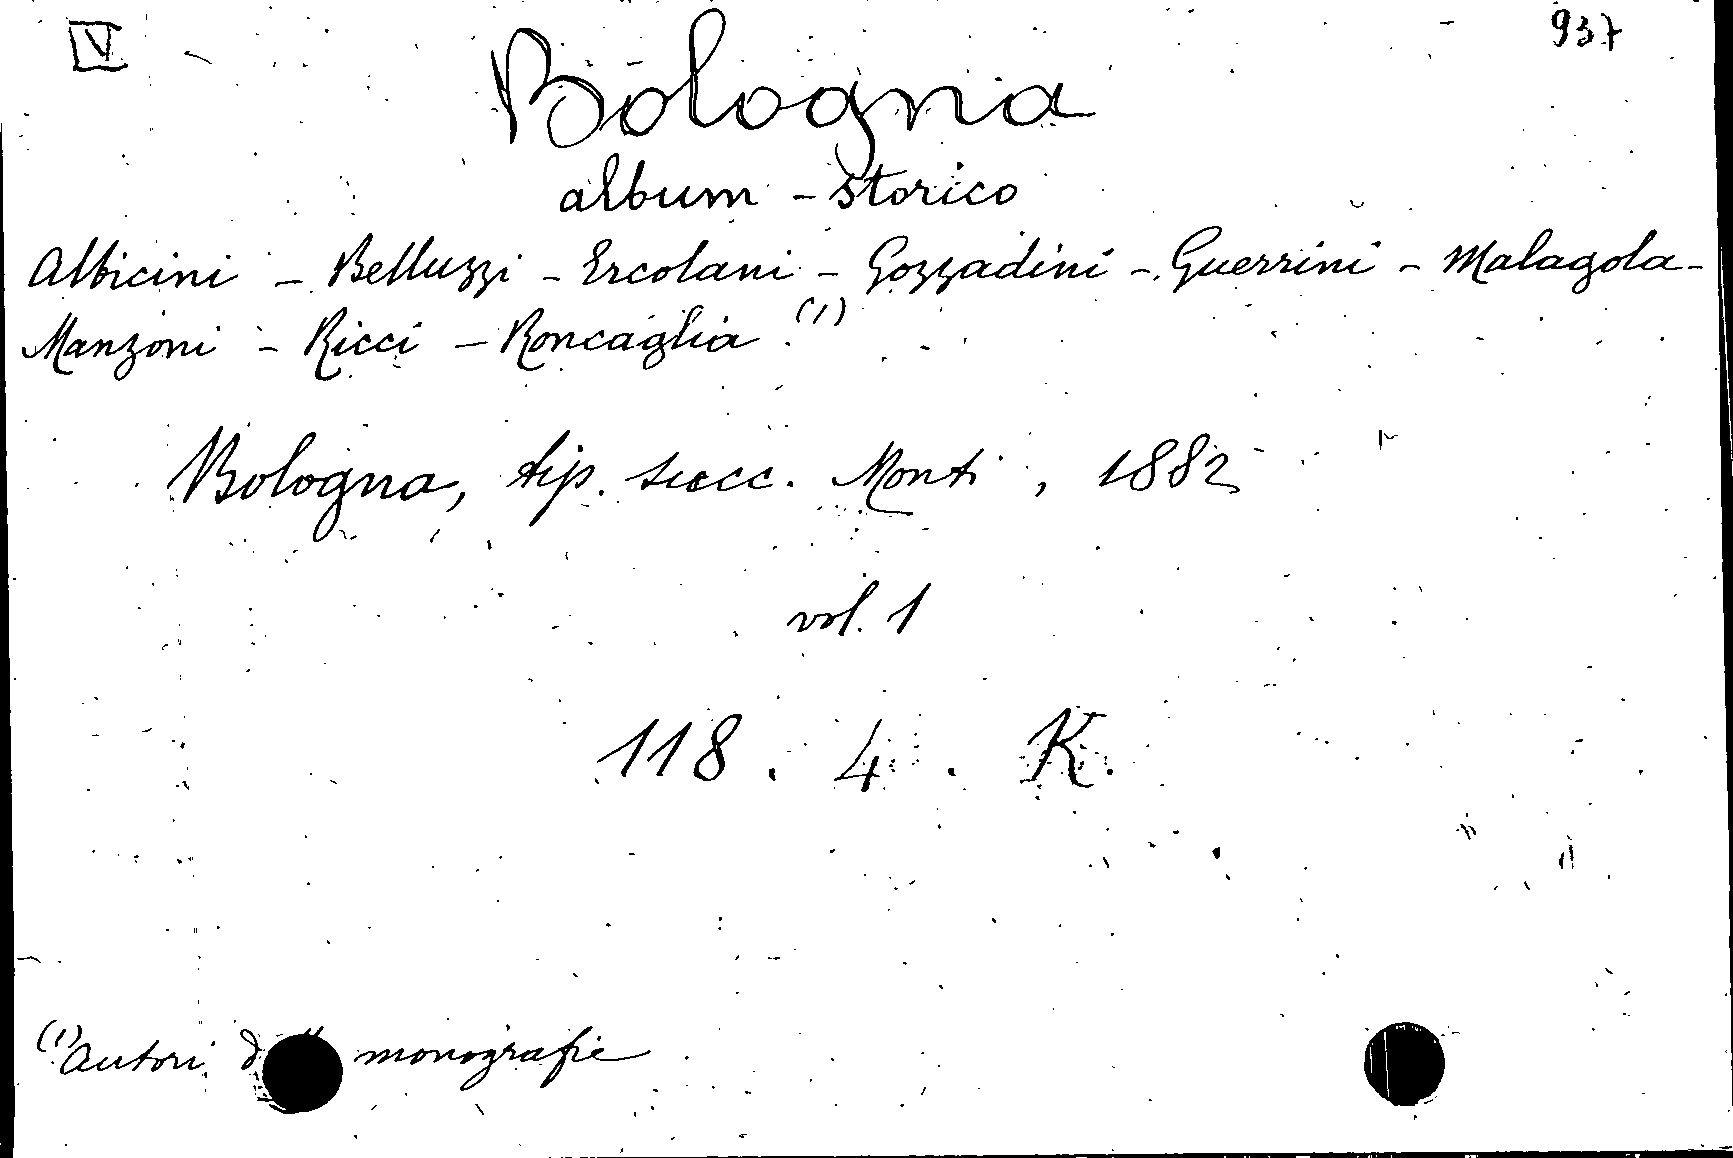 V 937
Bologna
album - storico
Albicini - Belluzzi - Ercolani - Gozzadini - Guerrini - Malagola -
Manzoni - Ricci - Roncaglia (1)
Bologna, tip. succ. Monti, 1882
vol. 1
118. 4. K.
(1) Autori monografie